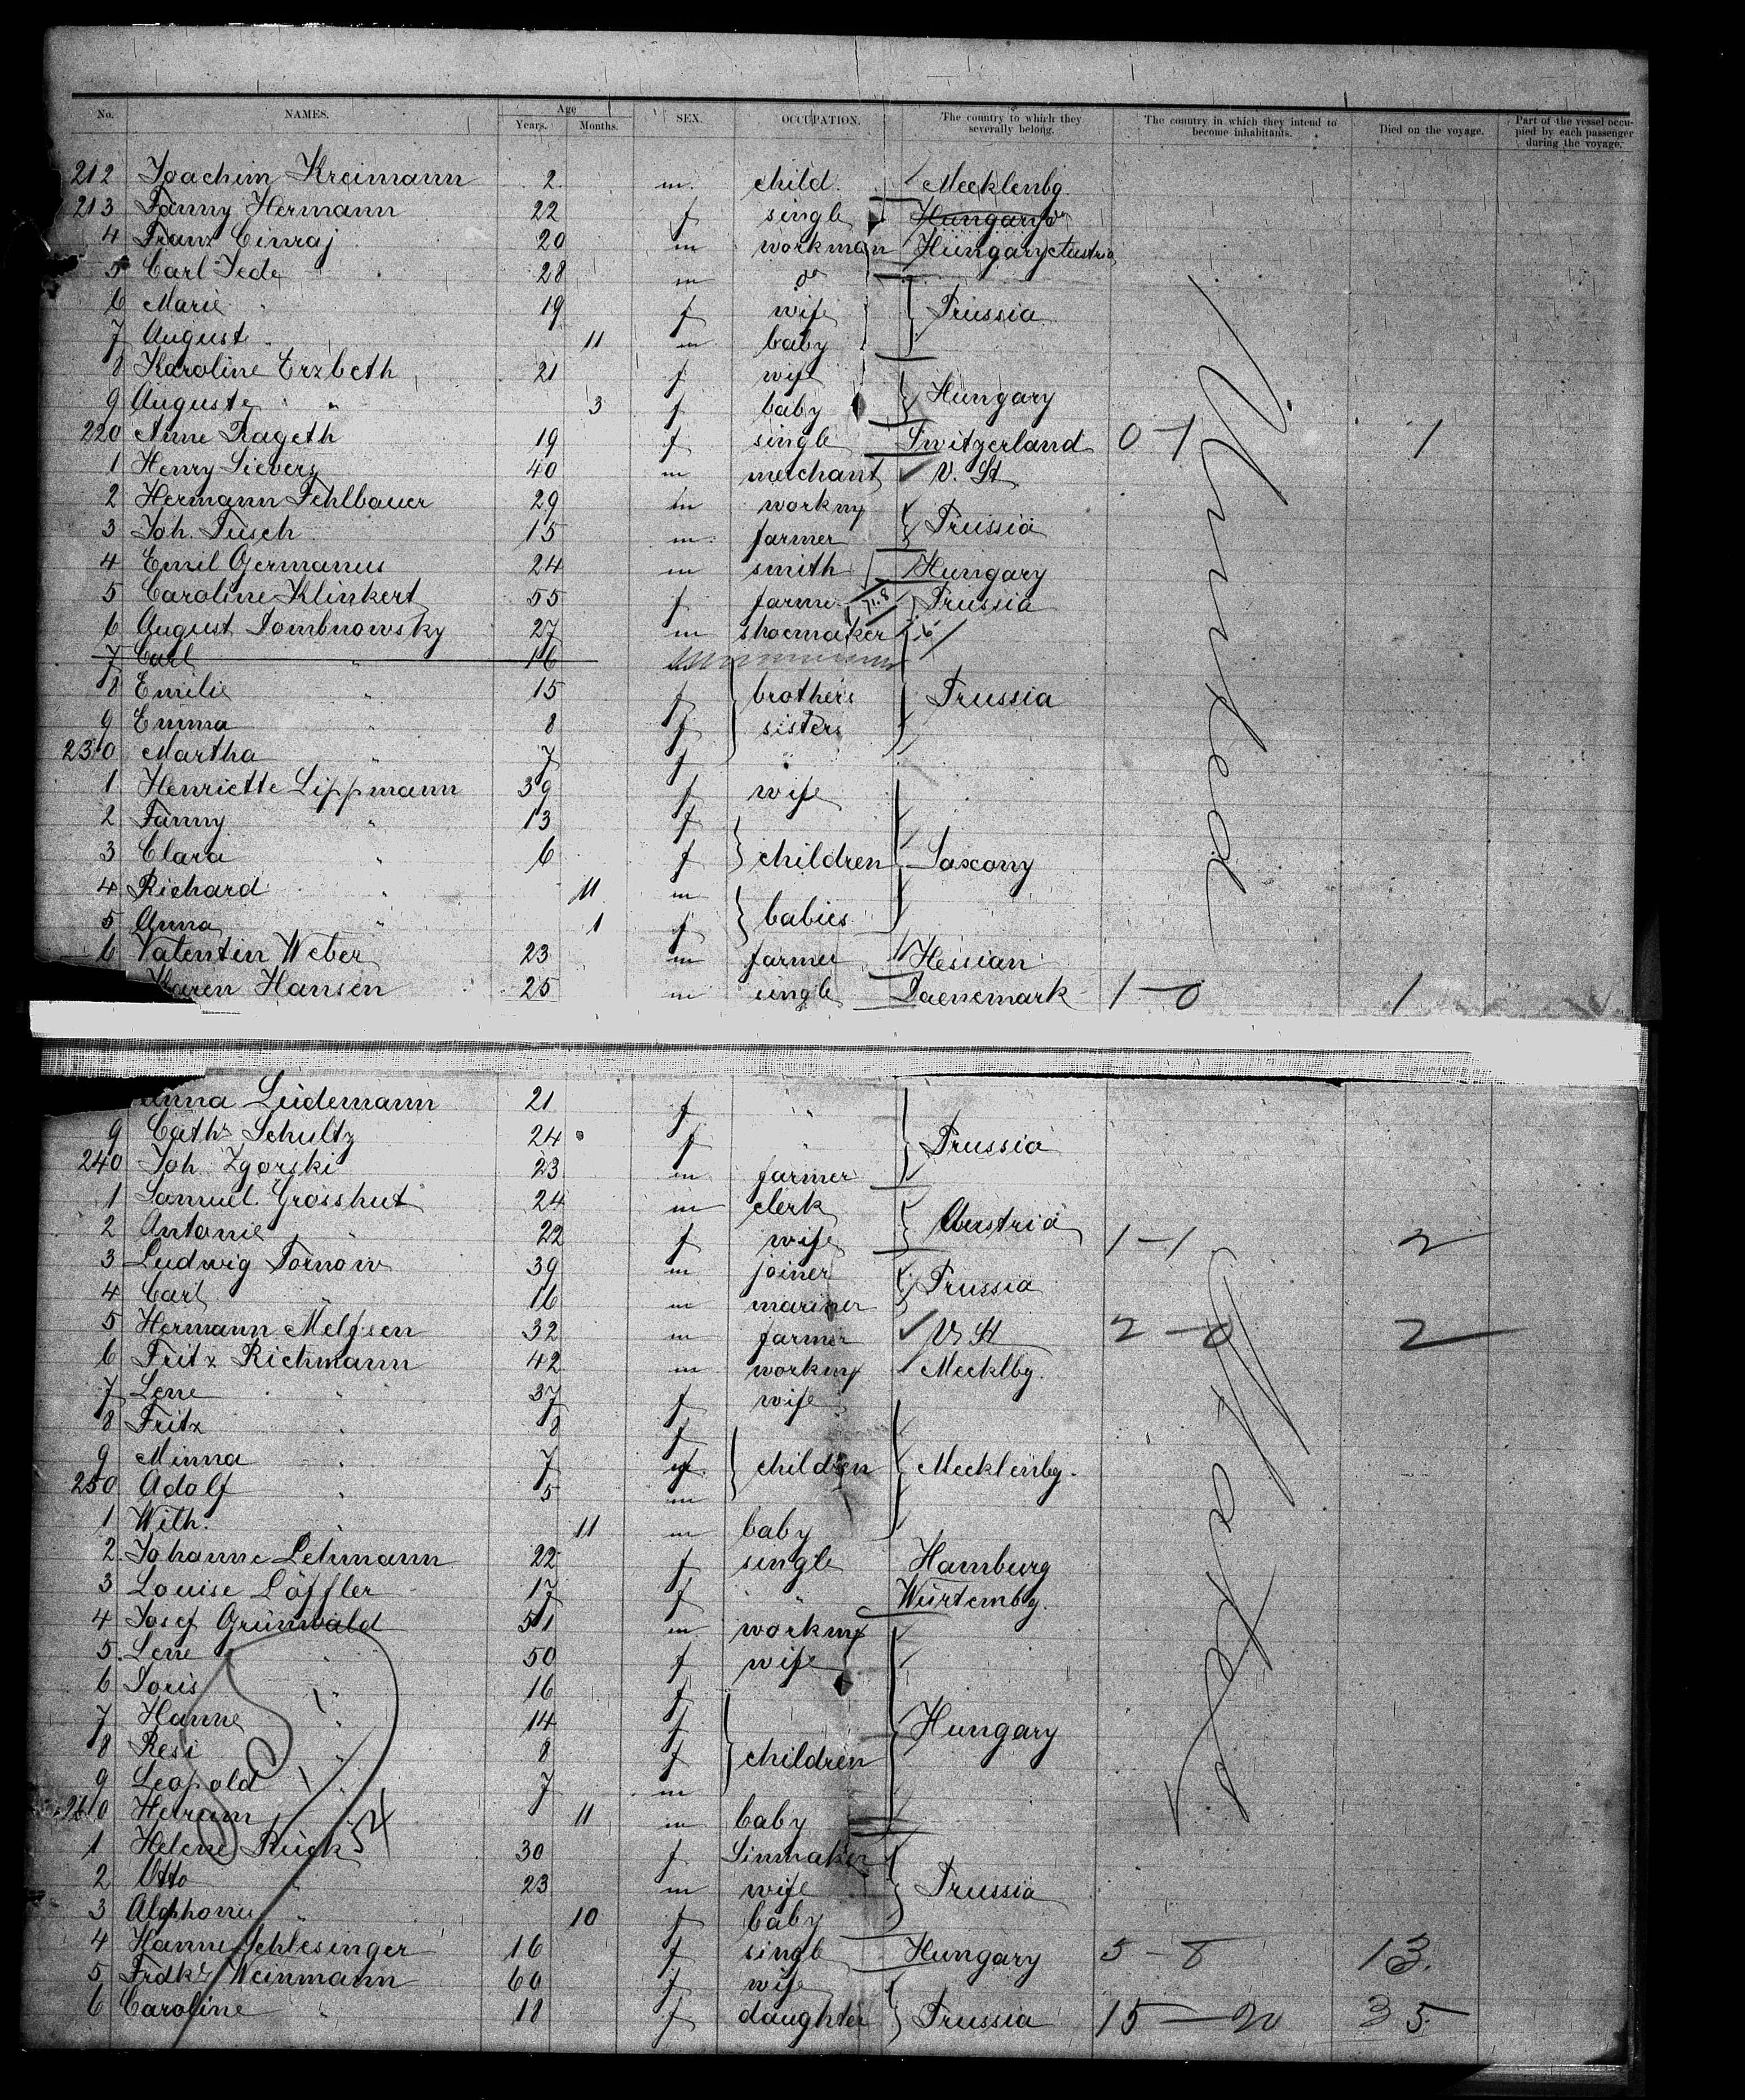 No. NAMES. Age Years. Months. SEX. OCCUPATION. The country to which they severally belong. The country in which they intend to become inhabitants. Died on the voyage. Part of the vessel occupied by each passenger during the voyage.
212 Joachim Kreimann 2 m. child. Mecklenbg.
213 Fanny Hermann 22 f single Hungary
4 Franz Cinraj 20 m workman Hungary Austria
5 Carl Jede 28 m do
6 Marie " 19 f wife Prussia
7 August " 11 m baby
8 Karoline Erzbeth 21 f wife
9 Auguste " 3 f baby Hungary
220 Anne Rageth 19 f single Switzerland 0-1 1
1 Henry Sievers 40 m merchant V. St
2 Hermann Fehlbauer 29 m workm
3 Joh. Pusch 15 m. farmer Prussia
4 Emil Germanus 24 m smith Hungary
5 Caroline Klinkert 55 f farmer Prussia
6 August Dombrowsky 27 m shoemaker
7 Carl " 16
8 Emilie " 15 f brothers Prussia
9 Emma " 8 f sisters
230 Martha " 7 f "
1 Henriette Lippmann 39 f wife
2 Fanny " 13 f
3 Clara " 6 f children Saxony
4 Richard " 11 m
5 Anna " 1 f babies
6 Valentin Weber 23 m farmer Hessian
Karen Hansen 25 m single Daenemark 1-0 1
Anna Ludemann 21 f "
9 Cathr Schultz 24 f " Prussia
240 Joh. Zgorski 23 m farmer
1 Samuel Grosshut 24 m clerk
2 Antonie " 22 f wife Austria 1-1 2
3 Ludwig Tornow 39 m joiner Prussia
4 Carl " 16 m mariner
5 Hermann Melfsen 32 m farmer V St 2-0 2
6 Fritz Richmann 42 m workm Mecklbg.
7 Lene " 37 f wife
8 Fritz " 8 f
9 Minna " 7 f children Mecklenbg.
250 Adolf " 5 m
1 Wilh. " 11 m baby
2 Johanne Lehmann 22 f single Hamburg
3 Louise Löffler 17 f " Würtembg.
4 Josef Grünwald 51 m workm
5 Lene " 50 f wife
6 Doris " 16 f
7 Hanne " 14 f Hungary
8 Resi " 8 f children
9 Leopold " 7 m
260 11 m baby
1 Helene Rück 30 f
2 Otto " 23 m wife Prussia
3 " 10 f baby
4 Hanni Schlesinger 16 f single Hungary 5-8 13.
5 Frdke Weinmann 60 f wife
6 Caroline " 18 f daughter Prussia 15-20 35